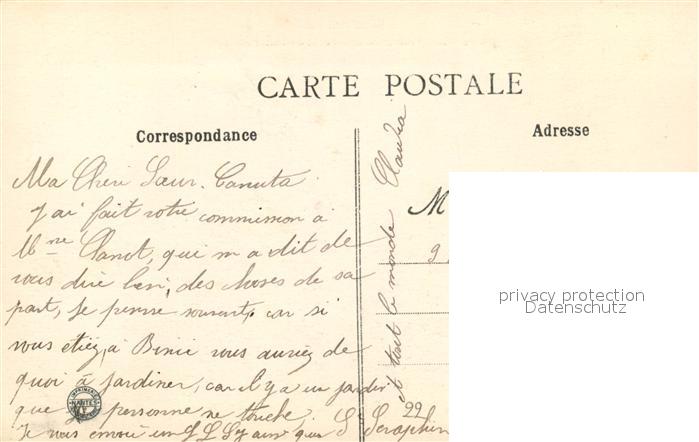 CARTE POSTALE
Correspondance
Adresse
Ma Cheri Sœur. Canuta
J'ai fait votre commission à
Mme Clanot, qui m a dit de
vous dire bien, des choses de sa
part, Je pense souvent, car si
vous etiez, à Binic vous auriez de
quoi à jardiner, car il y a un jardin
que personne ne touche. Sr Seraphin
Je vous envoie un
et tout le monde Claudia
M
9
22
NANTES
privacy protection
Datenschutz